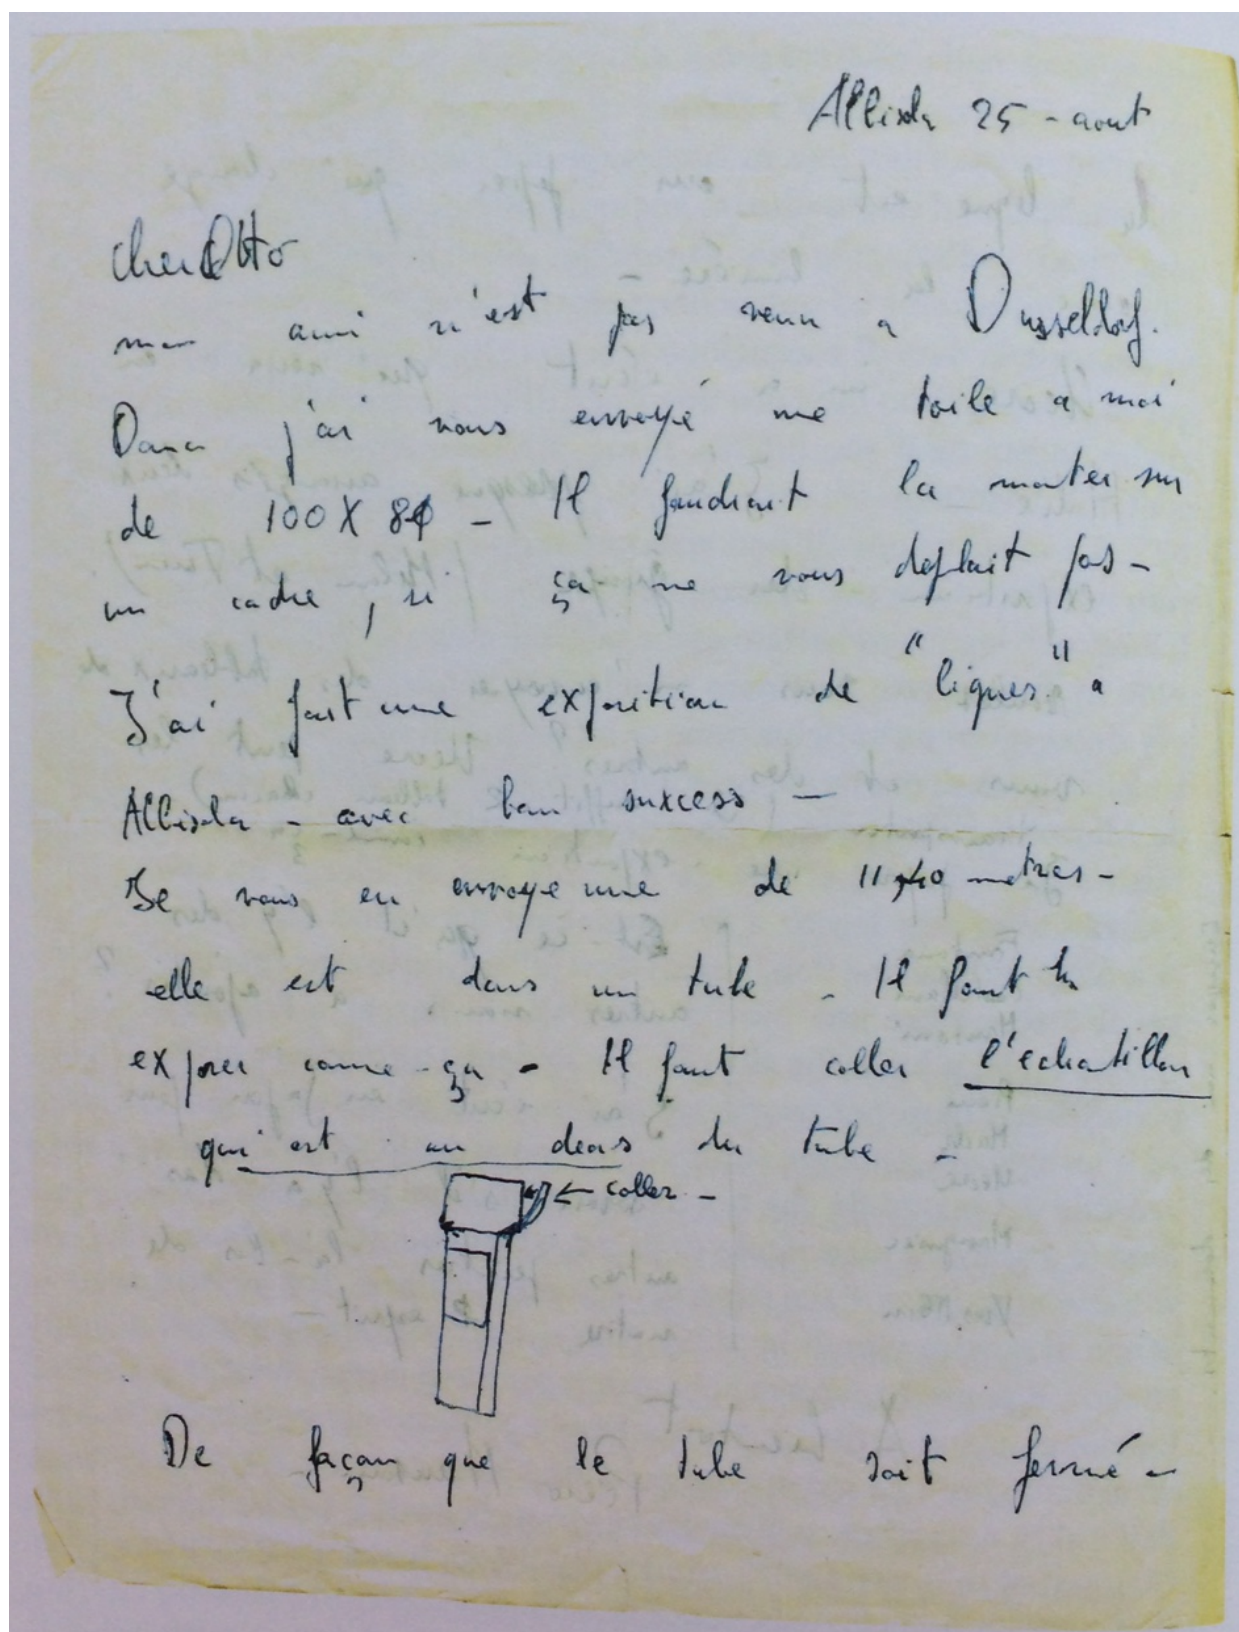 Albisola 25 - aout
cher Otto
mon ami n'est pas venu a Dusseldorf.
Donc j'ai vous envoyé une toile a moi
de 100 X 80 - Il faudrait la monter sur
un cadre, si ça ne vous deplait pas -
J'ai fait une exposition de "lignes" a
Albisola - avec bon success -
Je vous en envoye une de 11 metres -
elle est dans un tube - Il faut la
exposer comme-ça - Il faut coller l'echantillon
qui est au deors du tube -
← coller -
De façon que le tube soit fermé -